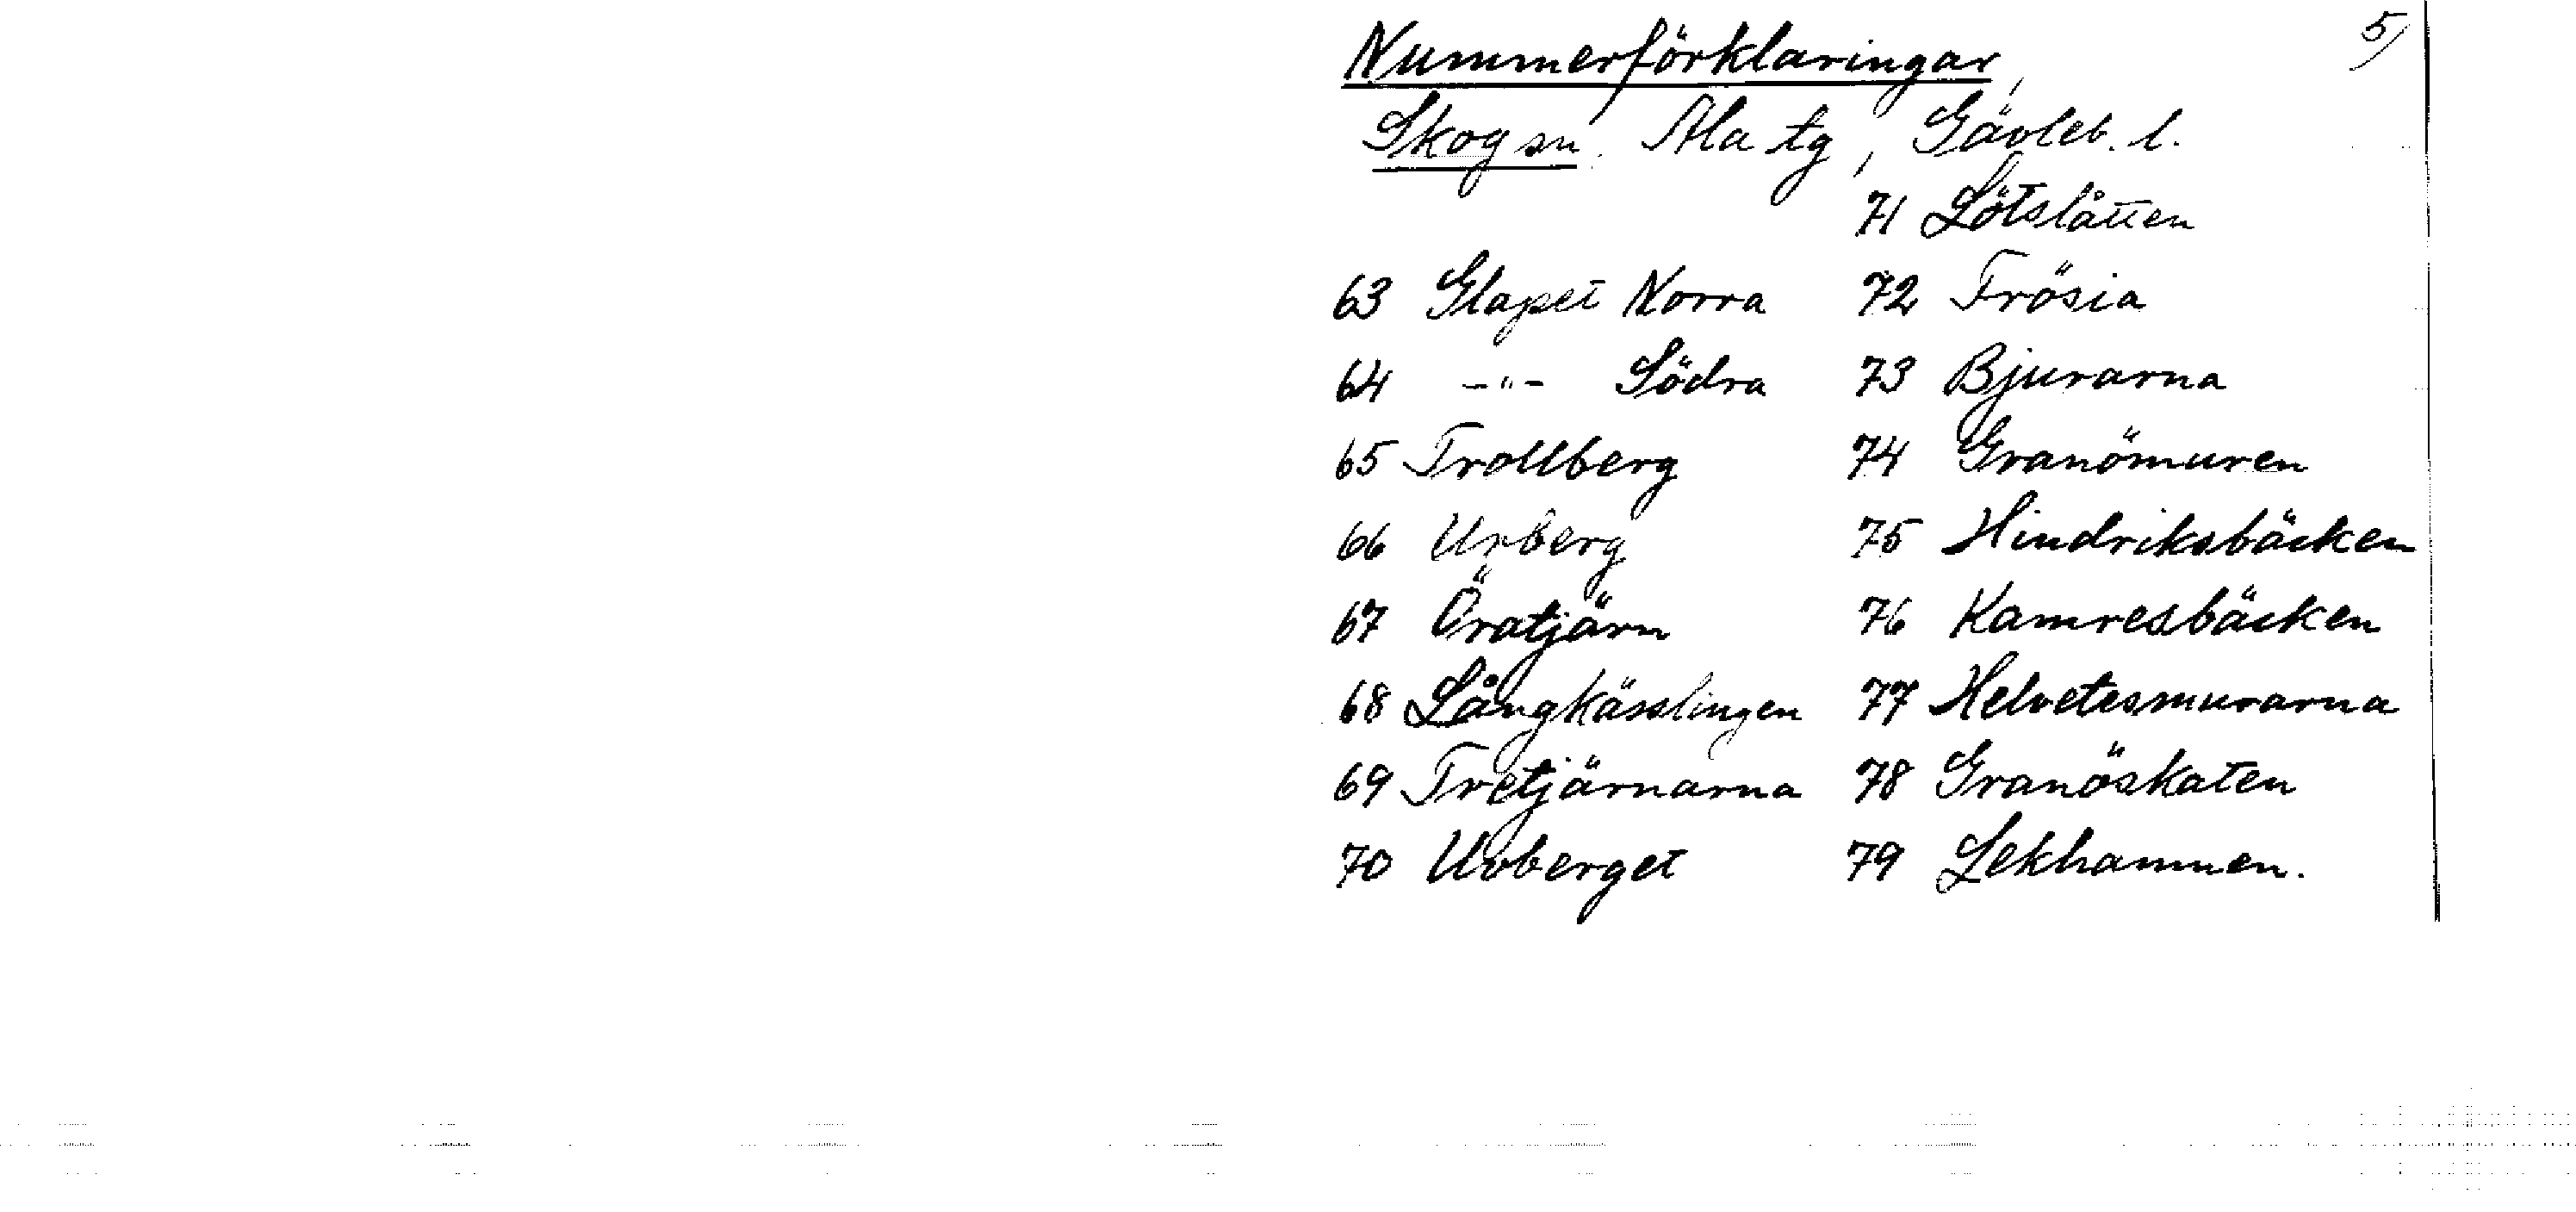 5)
Nummerförklaringar,
Skog sn. Ala tg, Gävleb. l.
63 Glapet Norra
64 -"- Södra
65 Trollberg
66 Urberg
67 Öratjärn
68 Långkässlingen
69 Tretjärnarna
70 Uvberget
71 Lötslåtten
72 Frösia
73 Bjurarna
74 Granömuren
75 Hindriksbäcken
76 Kamresbäcken
77 Helvetesmurarna
78 Granöskaten
79 Lekhamnen.